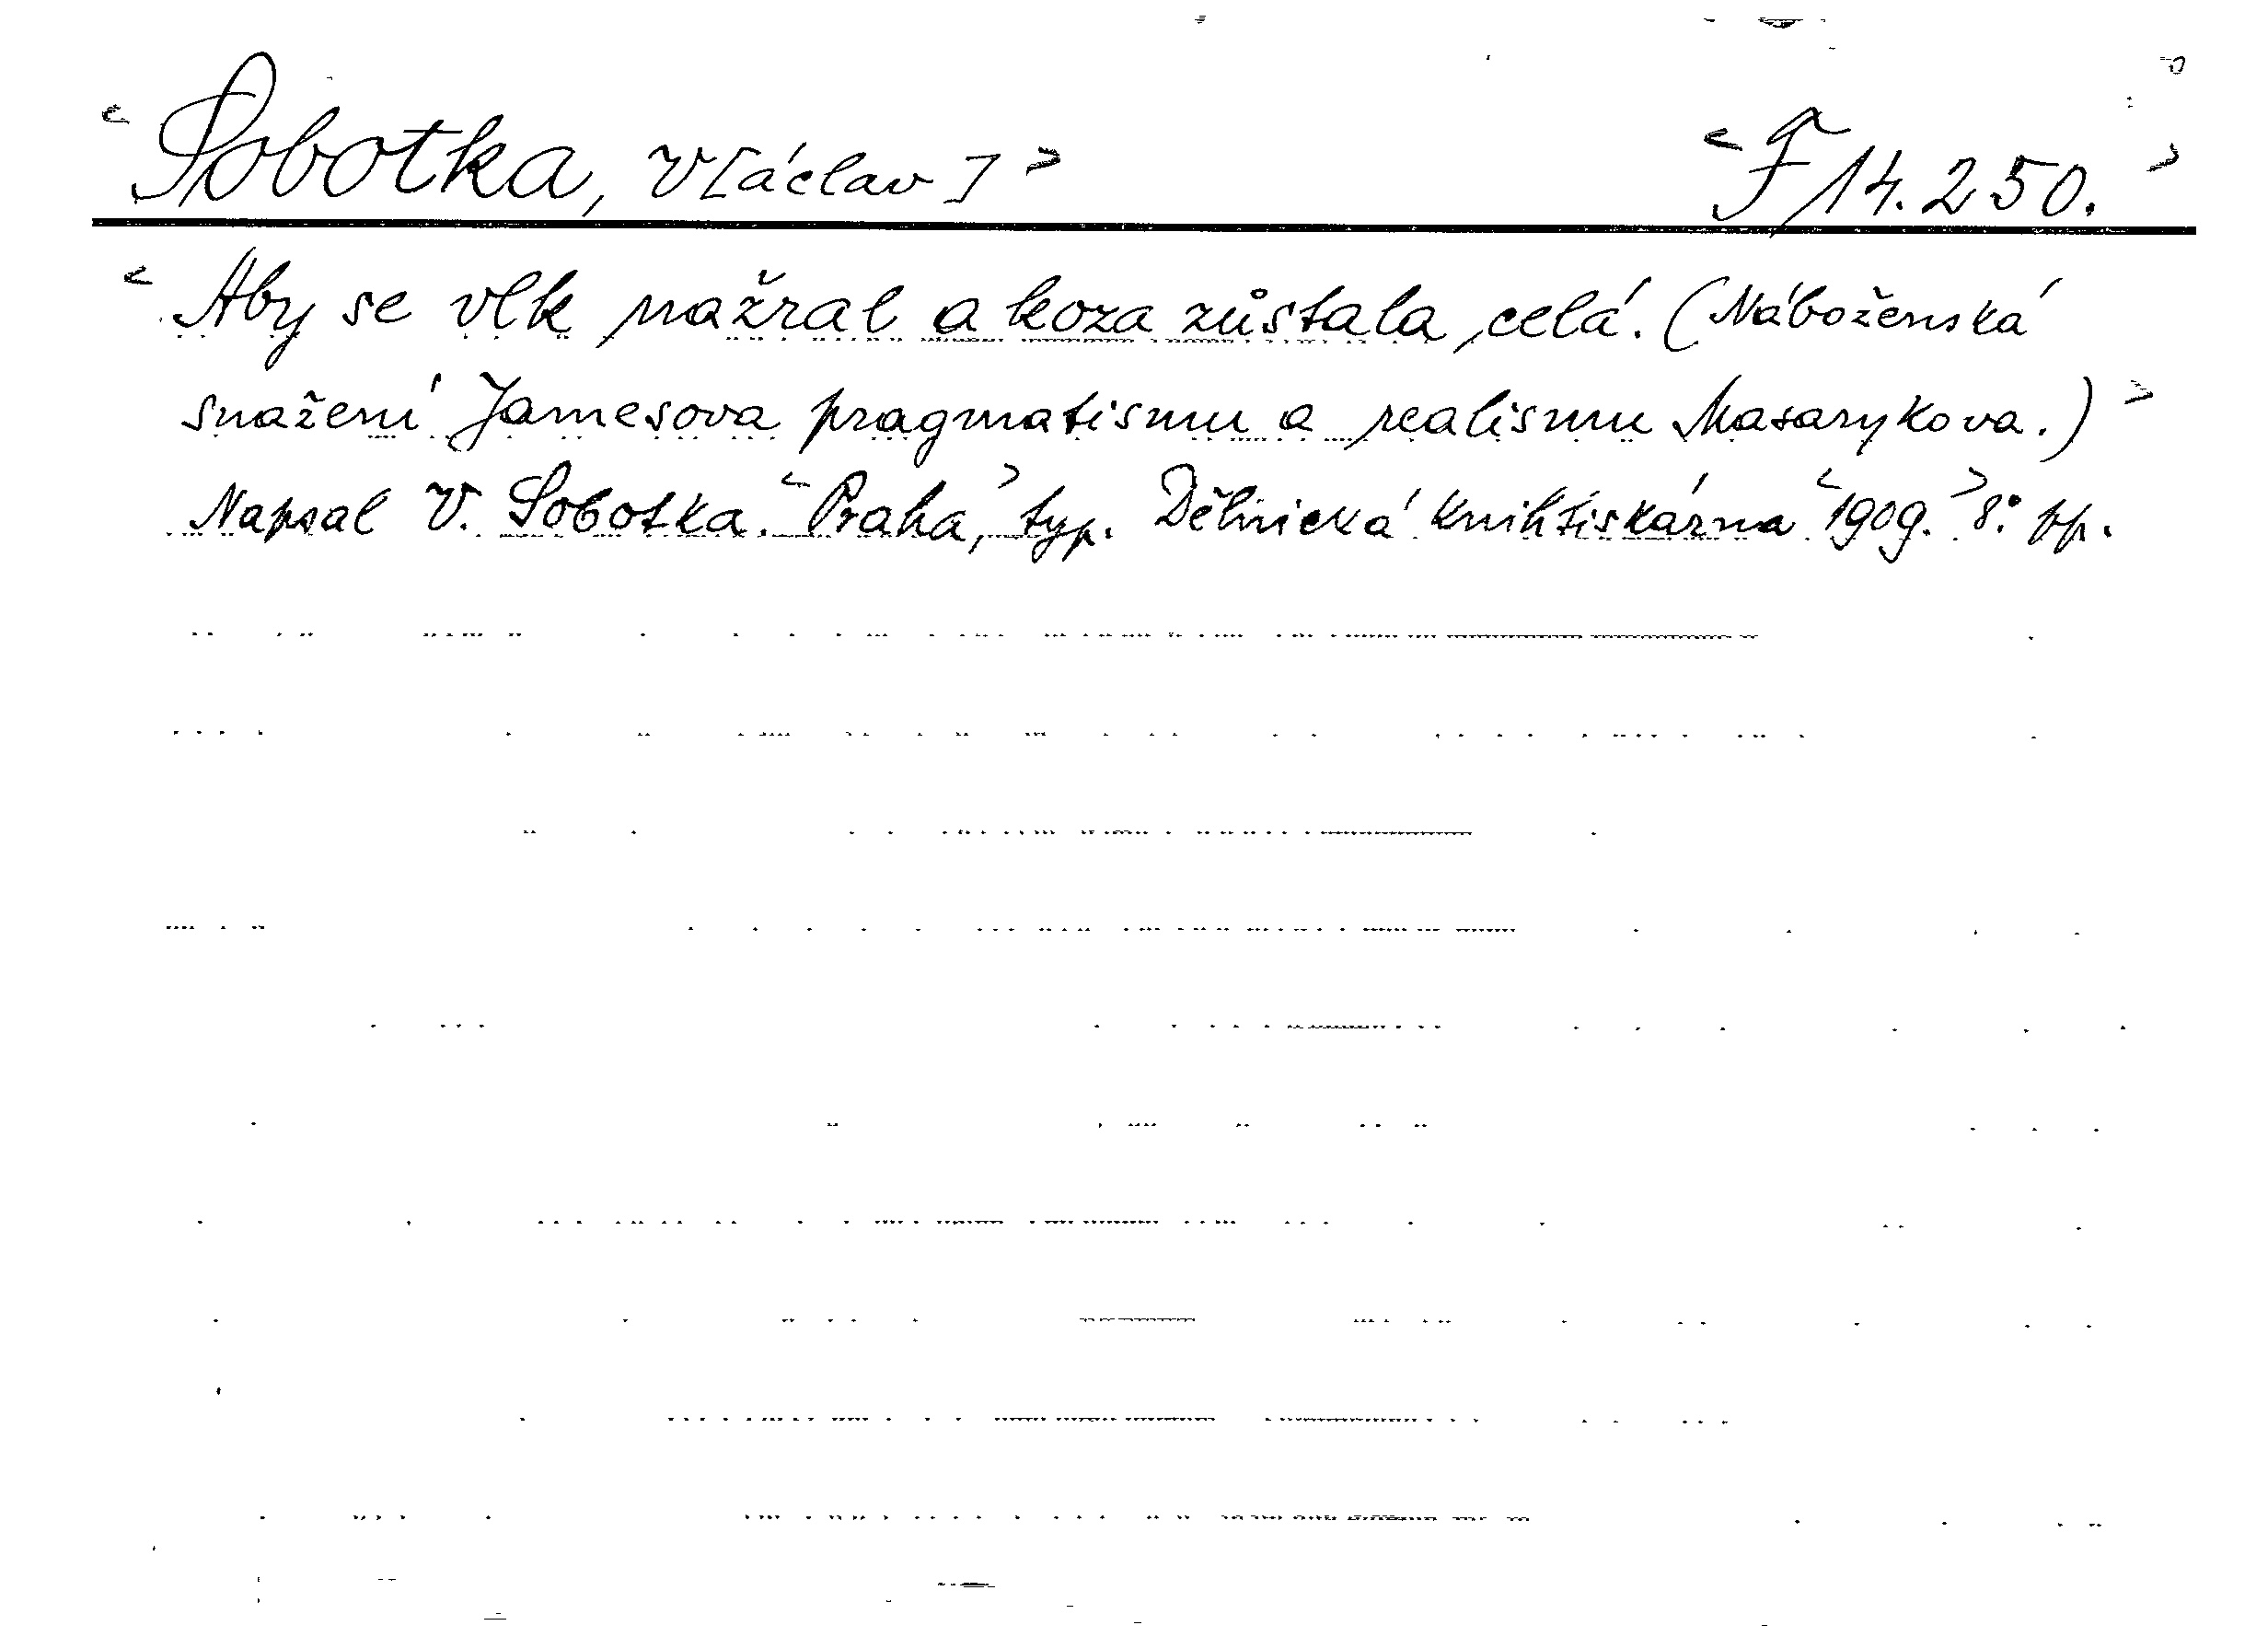 < Sobotka, V[áclav] > < F 14.250. >
< Aby se vlk nažral a koza zůstala celá. (Náboženská
snažení Jamesova pragmatismu a realismu Masarykova.) >
Napsal V. Sobotka. < Praha, > typ. Dělnická knihtiskárna < 1909. > 8.° pp.